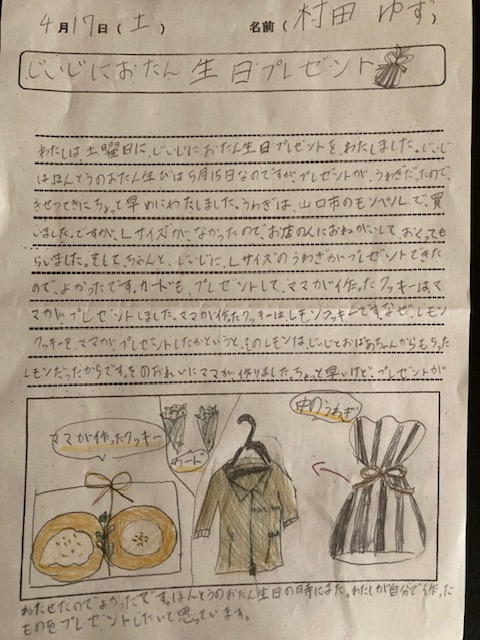 4月17日(土) 名前(村田 ゆず)
じいじにおたん生日プレゼント
わたしは、土曜日に、じいじにおたん生日プレゼントを、わたしました。じいじ
はほんとうのおたん生びは5月15日なのですが、プレゼントが、うわぎだ、たので、
きせつてきにちょっと早めにわたしました。うわぎは、山口市のモンベルして、買
いました。ですが、Lサイズが、なかったので、お店の人におねがいして、おくっても
らいました。そして、ちゃんと、じいじに、Lサイズのうわぎがプレゼントできた
ので、よかったです。カードも、プレゼントして、ママが作ったクッキーはマ
マが、プレゼントしました。ママが作ったクッキーは、レモンクッキーです。なぜ、レモン
クッキーを、ママが、プレゼントしたかというと、そのレモンは、じいじとおばあちゃんからもらった
レモンだったからです。そのおれいにママが作りました。ちょっと早いけど、プレゼントが
ママが作ったクッキー
カード
中のうわぎ
わたせたのでよかったです。ほんとうのおたん生日の日時にまた、わたしが自分で作った
ものをプレゼントしたいと思っています。